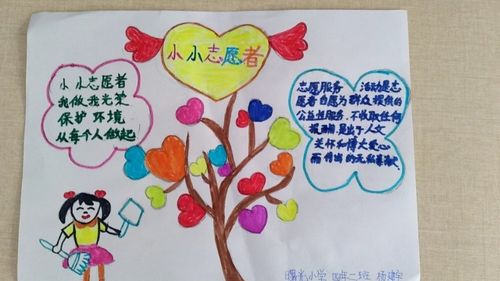 小小志愿者
小小志愿者
我做我光荣
保护环境
从每个人做起
志愿服务 活动是志
愿者自愿为群众提供的
公益性服务,不收取任何
报酬,是出于人文
关怀和博大爱心
而付出的无私奉献
曙光小学 四年二班 杨建宇